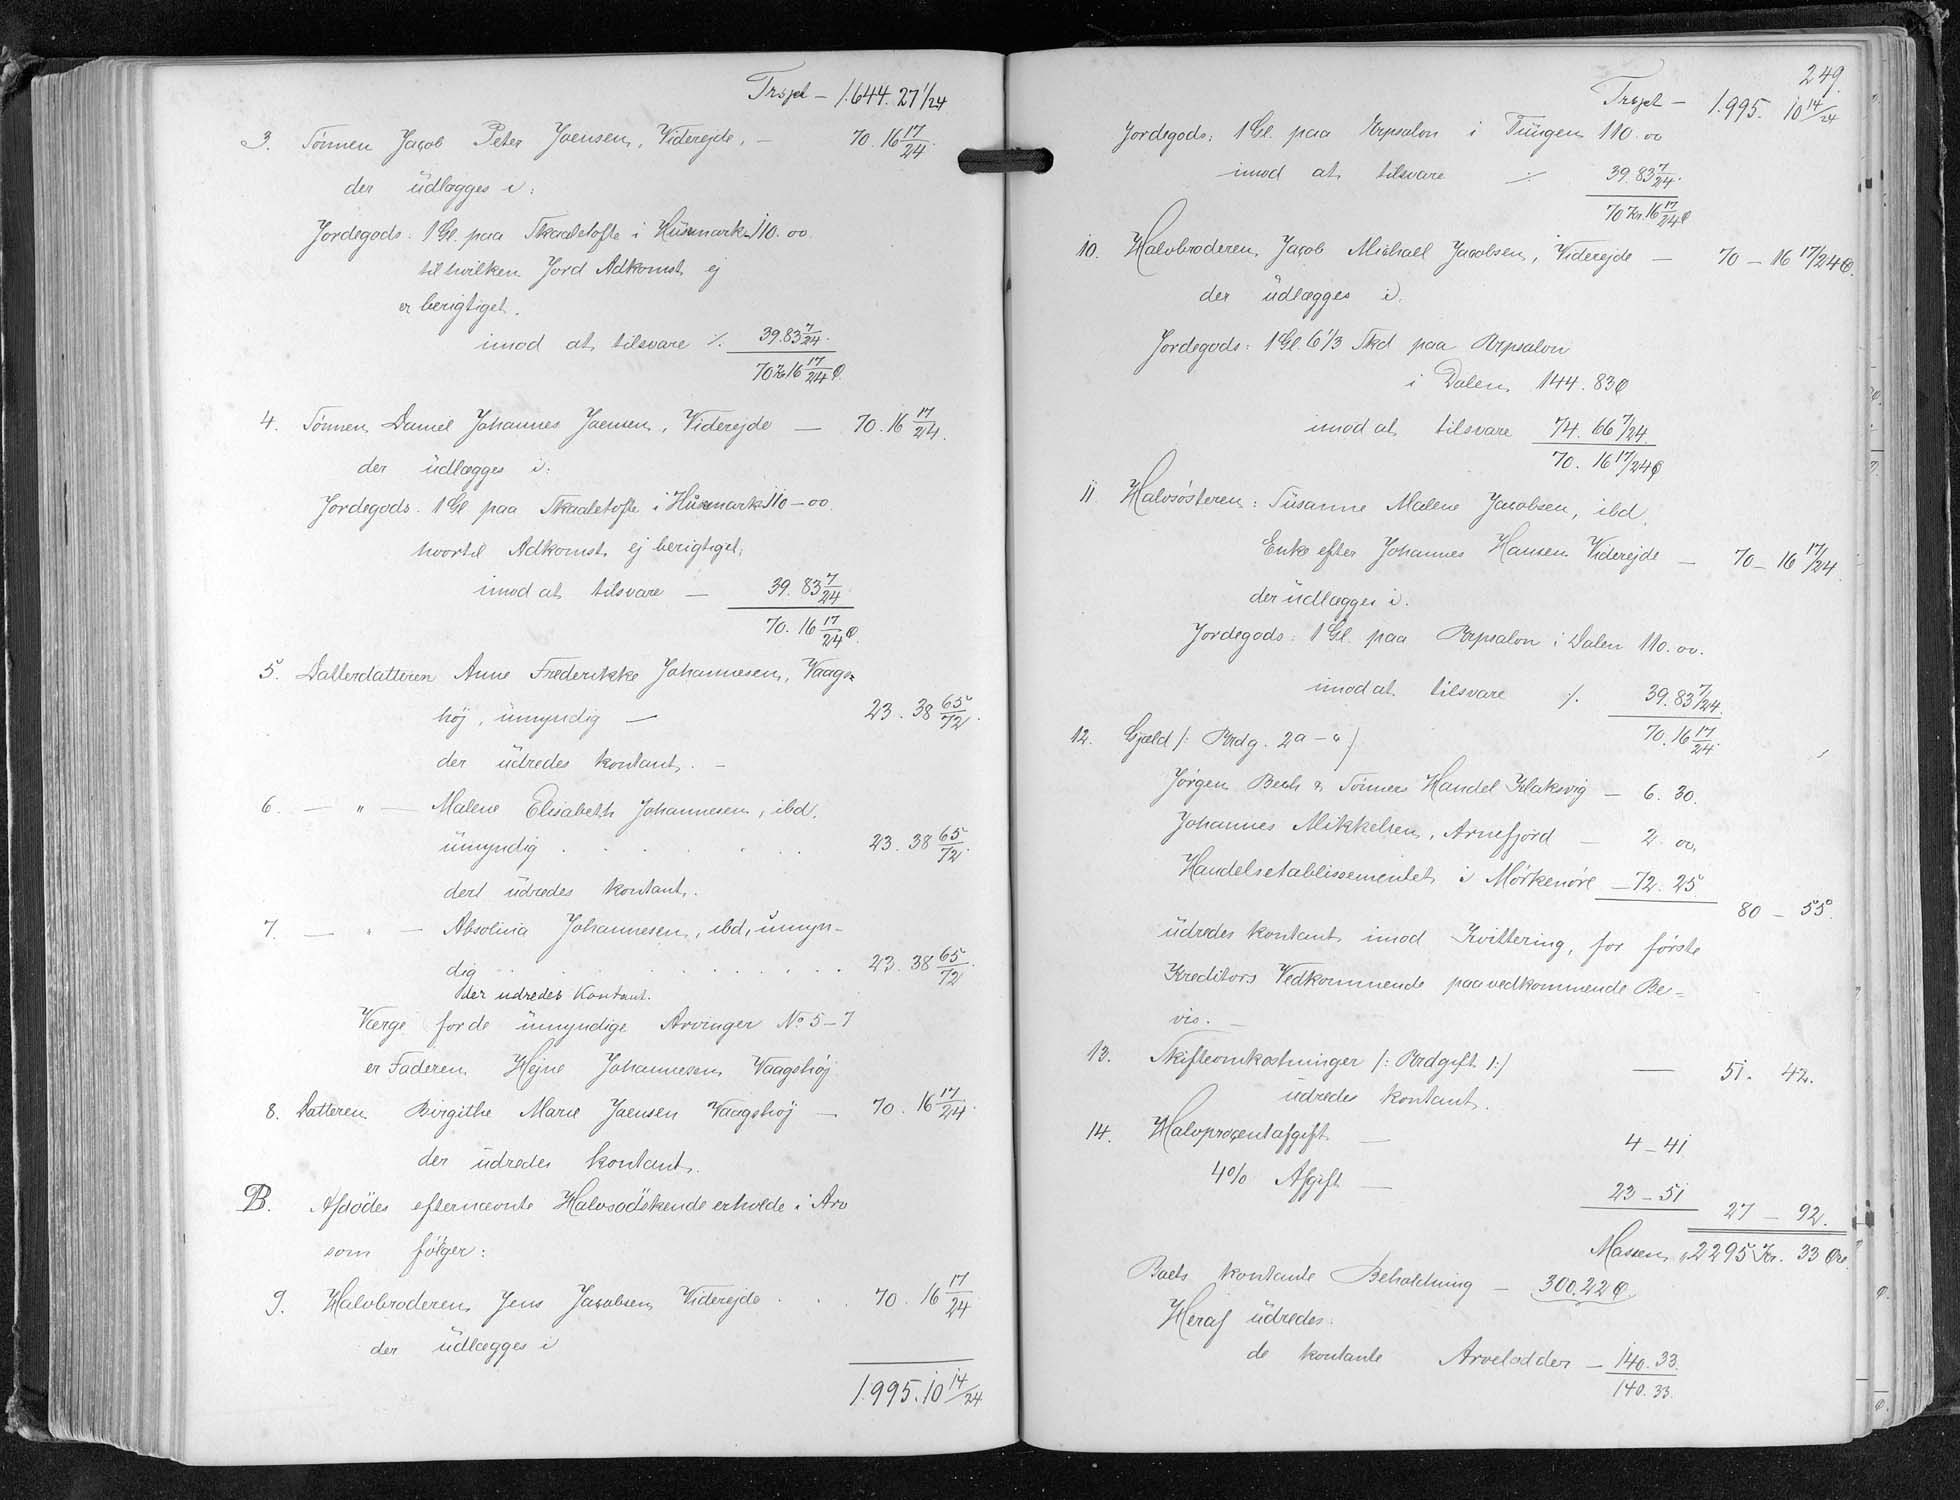 Trspt – 1.644. 27 1/24
3. Sønnen Jacob Peter Joensen, Viderejde, – 70. 16 17/24.
der üdlægges i:
Jordegods: 1 Gl. paa Skaaletofte i Hüsmark 110. 00.
til hvilken Jord Adkomst ej
er berigtiget.
imod at tilsvare ./. 39. 83 7/24.
70 Kr 16 17/24 Ø.
4. Sønnen Daniel Johannes Joensen, Viderejde – 70. 16 17/24.
der üdlægges i:
Jordegods. 1 Gl paa Skaaletofte i Hüsmark 110 – 00.
hvortil Adkomst ej berigtiget,
imod at tilsvare – 39. 83 7/24
70. 16 17/24 Ø.
5. Datterdatteren Anne Frederikke Johannesen, Vaags=
høj, ümyndig – 23. 38 65/72.
der üdredes kontant. –
6. – " – Malene Elisabeth Johannesen, ibd.
ümyndig . . . . . 23. 38 65/72.
dert üdredes kontant.
7. – " – Absolina Johannesen, ibd, ümyn-
dig . . . . . . . . . 23. 38 65/72.
der udredes Kontant.
Værge for de ümyndige Arvinger No 5 – 7
er Faderen Hejne Johannesen Vaagshøj
8. Datteren Birgithe Marie Joensen Vaagshøj – 70. 16 17/24.
der üdredes kontant.
B. Afdødes efternævnte Halvsødskende erholde i Arv
som følger:
9. Halvbroderen Jens Jacobsen Viderejde . . . 70. 16 17/24
der üdlægges i
1.995. 10 14/24
249.
Trspt – 1.995. 10 14/24
Jordegods: 1 Gl. paa Arpsalon i Tüngen 110. 00
imod at tilsvare ./. 39. 83 7/24.
70 Kr. 16 17/24 Ø
10. Halvbroderen Jacob Michael Jacobsen, Viderejde – 70 – 16 17/24 Ø.
der üdlægges i.
Jordegods: 1 Gl. 6 1/3 Skd paa Arpsalon
i Dalen 144. 83 Ø
imod at tilsvare 74. 66 7/24.
70. 16 17/24 Ø
11. Halvsøsteren: Süsanne Malene Jacobsen, ibd.
Enke efter Johannes Hansen Viderejde – 70 – 16 17/24.
der üdlægges i.
Jordegods: 1 Gl. paa Arpsalon i Dalen 110. 00.
imod at tilsvare ./. 39. 83 7/24.
70. 16 17/24.
12. Gjæld /: Brdg. 2a – c /
Jørgen Bech & Sønners Handel Klaksvig – 6. 30.
Johannes Mikkelsen, Arnefjord – 2. 00,
Handelsetablissementet i Mørkenøre – 72. 25.
80 – 55.
üdredes kontant imod Kvittering, for første
Kreditors Vedkommende paa vedkommende Be=
vis. –
13. Skifteomkostninger /: Brdgift 1:/ – 51. 42.
üdredes kontant.
14. Halvprocentafgift – 4 – 41
4% Afgift – 23 – 51
27 – 92.
Massen 2295 Kr. 33 Øre.
Boets kontante Beholdning – 300. 22 Ø.
Heraf üdredes:
de kontante Arvelodder – 140. 33.
140. 33.